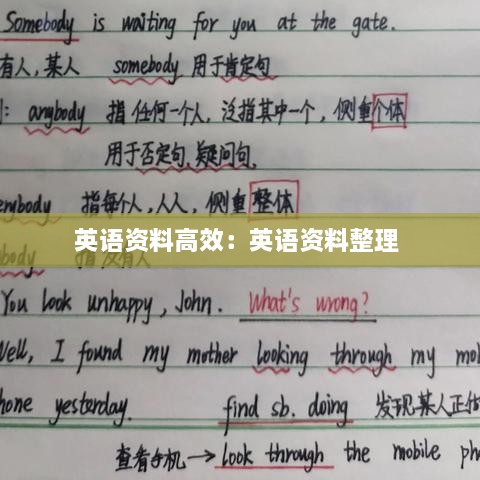 Somebody is waiting for you at the gate.
有人,某人 somebody 用于肯定句
: anybody 指任何一个人,泛指其中一个,侧重个体
用于否定句,疑问句.
erybody 指每个人,人人,侧重整体
英语资料高效：英语资料整理
body 指没有人
You look unhappy, John. What's wrong?
Well, I found my mother looking through my mob
hone yesterday. find sb. doing 发现某人正在做
查看手机→look through the mobile ph